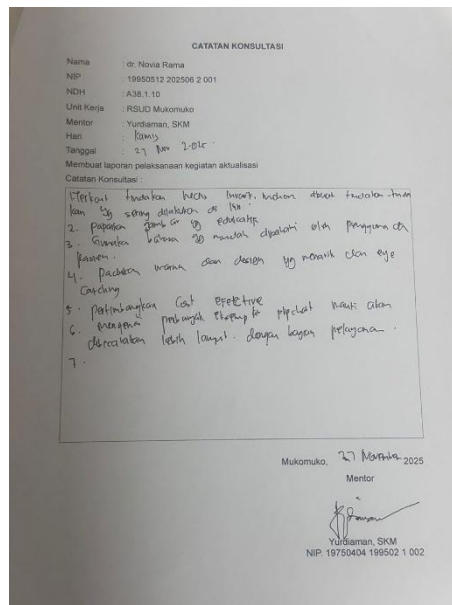 CATATAN KONSULTASI
Nama : dr. Novia Rama
NIP : 19950512 202506 2 001
NDH : A38.1.10
Unit Kerja : RSUD Mukomuko
Mentor : Yurdiaman, SKM
Hari : Kamis
Tanggal : 27 Nov 2025
Membuat laporan pelaksanaan kegiatan aktualisasi
Catatan Konsultasi :
tindakan tindakan
yg sering dilakukan di
2. paparkan gambar yg edukatif
3. Gunakan bahasa yg mudah dipahami oleh pengguna dan
4. padukan warna dan design yg menarik dan eye
Catching
5. pertimbangkan Cost efektive
6. mengenai perbanyak flipchart nanti akan
lebih lanjut dengan bagian pelayanan.
7.
Mukomuko, 27 November 2025
Mentor
Yurdiaman, SKM
NIP. 19750404 199502 1 002